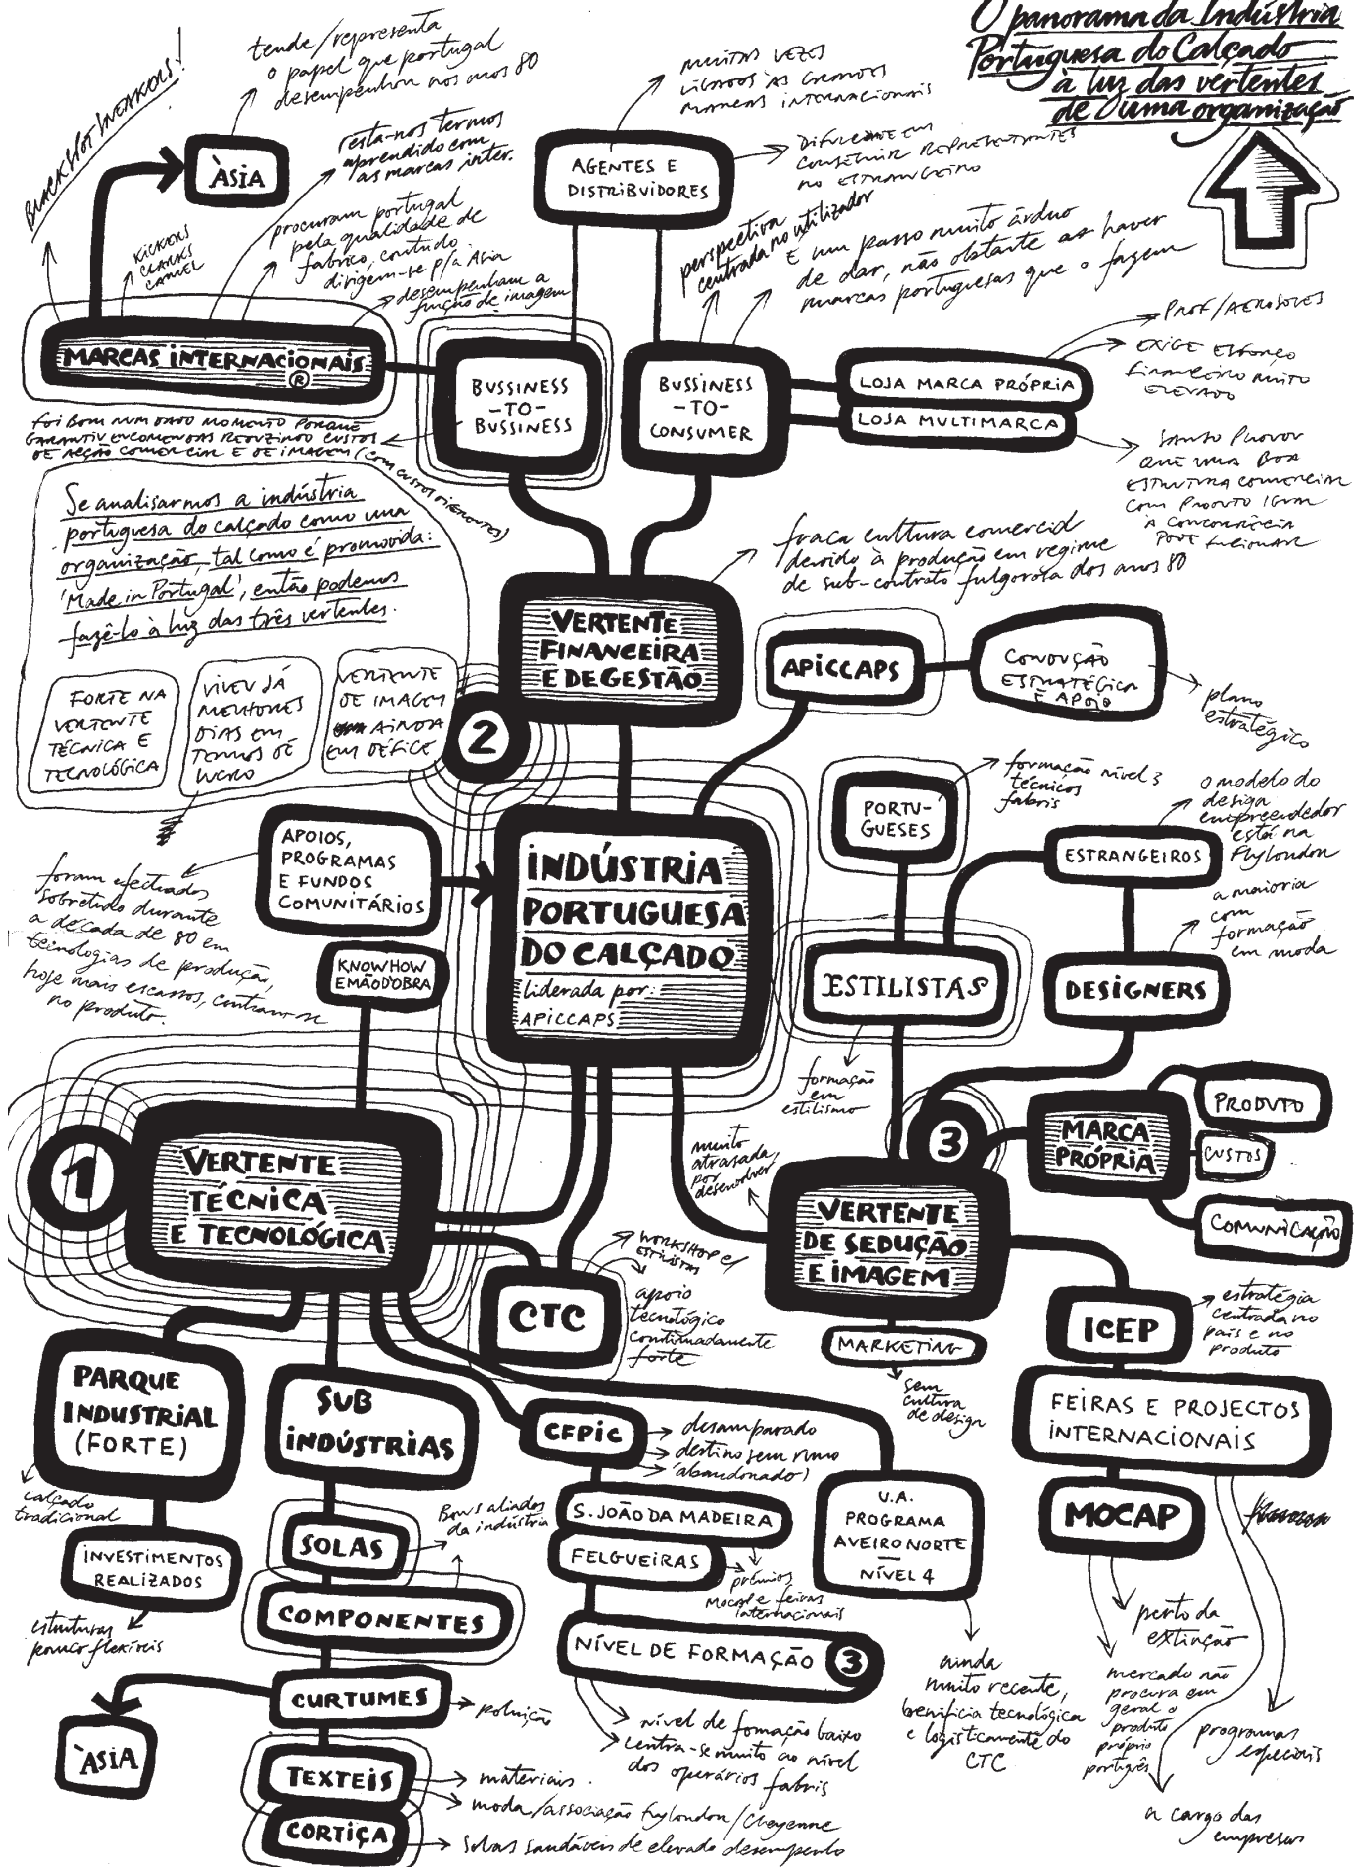 O panorama da Indústria
Portuguesa do Calçado
à luz das vertentes
de uma organização
BLACKSPOT SNEAKERS!
tende/representa
o papel que portugal
desempenhou nos anos 80
ÀSIA
resta-nos termos
aprendido com
as marcas inter.
KICKERS
CLARKS
CAMEL
procuram portugal
pela qualidade de
fabrico, contudo
dirigem-se p/a Asia
desempenham a
função de imagem
MARCAS INTERNACIONAIS
®
MUITAS VEZES
LIGADOS ÀS GRANDES
MARCAS INTERNACIONAIS
AGENTES E
DISTRIBUIDORES
DIFICULDADE EM
CONSEGUIR REPRESENTANTES
NO ESTRANGEIRO
perspectiva
centrada no utilizador
É um passo muito árduo
de dar, não obstante as haver
marcas portuguesas que o fazem
BUSSINESS
-TO-
BUSSINESS
BUSSINESS
-TO-
CONSUMER
LOJA MARCA PRÓPRIA
LOJA MULTIMARCA
PROF/AEROSOLES
EXIGE ESFORÇO
FINANCEIRO MUITO
ELEVADO
QUE UMA BOA
ESTRUTURA COMERCIAL
COM PRODUTO IGUAL
À CONCORRÊNCIA
PODE FUNCIONAR
FOI BOM NUM DADO MOMENTO PORQUE
GARANTIU ENCOMENDAS REDUZINDO CUSTOS
DE ACÇÃO COMERCIAL E DE IMAGEM (COM CUSTOS DIFERENTES)
Se analisarmos a indústria
portuguesa do calçado como uma
organização, tal como é promovida:
'Made in Portugal', então podemos
fazê-lo à luz das três vertentes.
FORTE NA
VERTENTE
TÉCNICA E
TECNOLÓGICA
VIVEU JÁ
MELHORES
DIAS EM
TERMOS DE
LUCRO
VERTENTE
DE IMAGEM
AINDA
EM DÉFICE
2
VERTENTE
FINANCEIRA
E DE GESTÃO
fraca cultura comercial
devido à produção em regime
de sub-contrato fulgorosa dos anos 80
APICCAPS
CONDUÇÃO
ESTRATÉGICA
E APOIO
plano
estratégico
APOIOS,
PROGRAMAS
E FUNDOS
COMUNITÁRIOS
foram efectuados
sobretudo durante
a década de 80 em
tecnologias de produção,
hoje mais escassos, centram-se
no produto.
KNOWHOW
E MÃO D'OBRA
INDÚSTRIA
PORTUGUESA
DO CALÇADO
liderada por:
APICCAPS
PORTU-
GUESES
formação nível 3
técnicos
fabris
o modelo do
design
empreendedor
está na
Flylondon
ESTRANGEIROS
a maioria
com
formação
em moda
ESTILISTAS
DESIGNERS
formação
em
estilismo
1
VERTENTE
TÉCNICA
E TECNOLÓGICA
muito
atrasada,
por
desenvolver
3
VERTENTE
DE SEDUÇÃO
E IMAGEM
MARCA
PRÓPRIA
PRODUTO
CUSTOS
COMUNICAÇÃO
CTC
WORKSHOP c/
ESTILISTAS
apoio
tecnológico
continuadamente
forte
MARKETING
sem
cultura
de design
ICEP
estratégia
centrada no
país e no
produto
FEIRAS E PROJECTOS
INTERNACIONAIS
MOCAP
perto da
extinção
mercado não
procura em
geral o
produto
próprio
português
programas
especiais
a cargo das
empresas
PARQUE
INDUSTRIAL
(FORTE)
calçado
tradicional
INVESTIMENTOS
REALIZADOS
estruturas
pouco flexíveis
SUB
INDÚSTRIAS
SOLAS
Bons aliados
da indústria
COMPONENTES
CURTUMES
poluição
ÀSIA
TEXTEIS
materiais.
moda/associação fuylondon/cheyenne
CORTIÇA
solas saudáveis de elevado desempenho
CFPIC
desamparado
destino sem rumo
(abandonado)
S. JOÃO DA MADEIRA
FELGUEIRAS
prémios
Mocap e feiras
internacionais
NÍVEL DE FORMAÇÃO 3
nível de formação baixo
centra-se muito ao nível
dos operários fabris
U.A.
PROGRAMA
AVEIRO NORTE
—
NÍVEL 4
ainda
muito recente,
benificia tecnológica
e logisticamente do
CTC